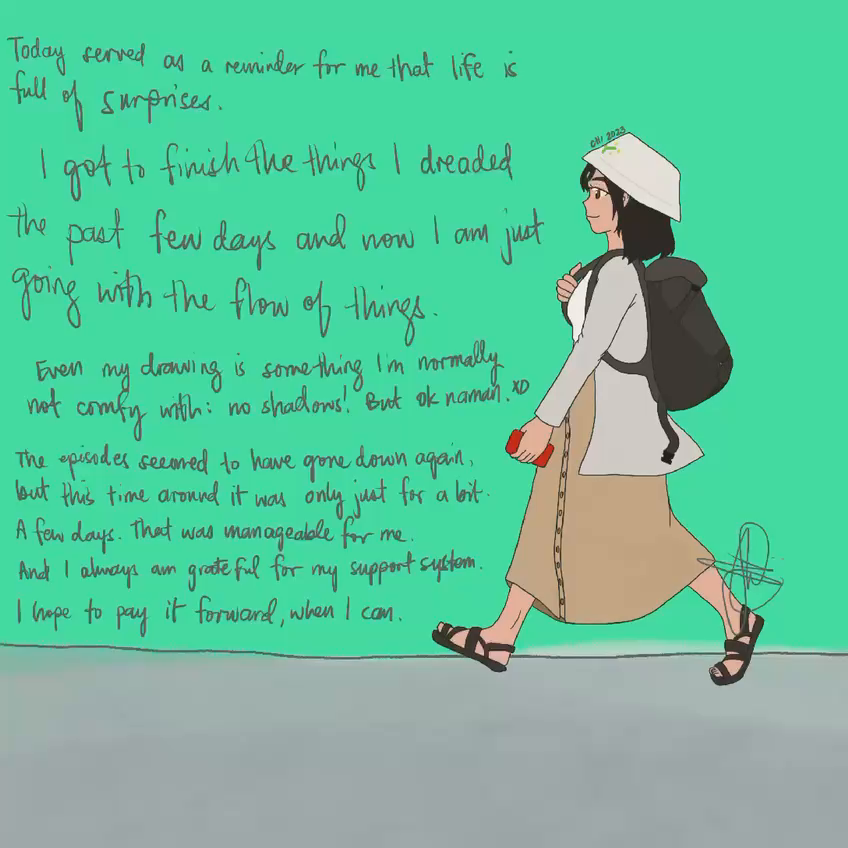 Today served as a reminder for me that life is
full of surprises.
I got to finish the things I dreaded
the past few days and now I am just
going with the flow of things.
Even my drawing is something I'm normally
not comfy with: no shadows! But ok naman. XD
The episodes seemed to have gone down again,
but this time around it was only just for a bit.
A few days. That was manageable for me.
And I always am grateful for my support system.
I hope to pay it forward, when I can.
CHI 2023